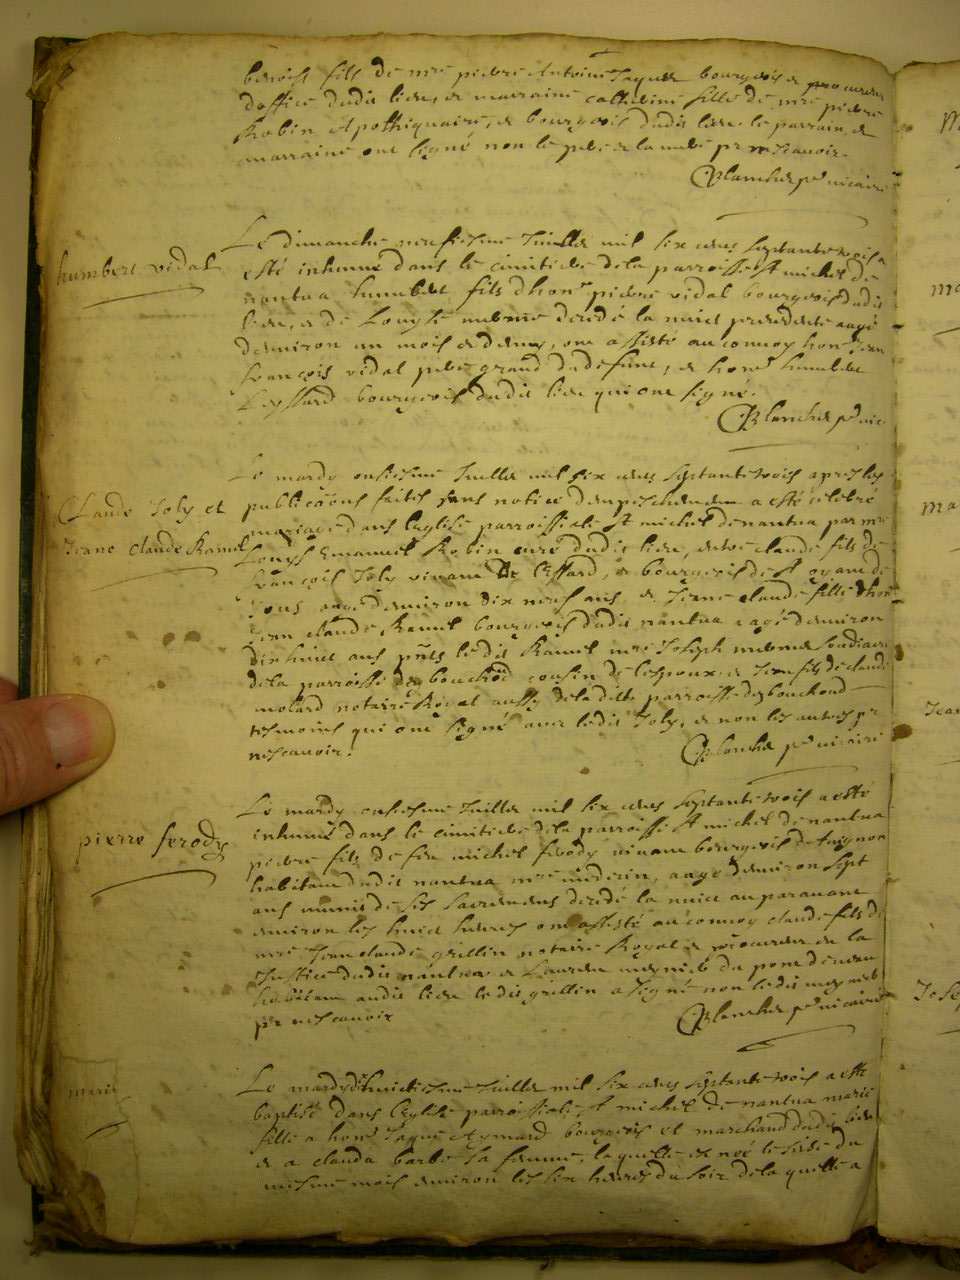 benoist fils de mre pierre Antoine Jaquer bourgeois et procureur
doffice dudit lieu, et marraine catherine fille de mre pierre
Robin Apothiquaire, et bourgeois dudit lieu le parrain, et
marraine ont signé non le pere et la mere pr ne scauoir.
Blanchet pre vicaire
humbert vidal
Le dimanche neufiesme Juillet mil six cens septante trois a
esté inhumé dans le cimitiere de la parroisse St michel de
nantua humbert fils dhonle pierre vidal bourgeois dudit
lieu, et de decedé la nuict precedente aagé
denuiron un mois et demy, ont assisté au conuoy honle Jean
françois vidal pere grand du defunt, et honle humbert
bourgeois dudit lieu qui ont signé.
Blanchet pre vic
Claude Joly et
Jeane claude Ramel
Le mardy onsiesme Juillet mil six cens septante trois apres les
publicaons faites sans notice dempeschement a esté celebré
mariage dans leglise parroissiale St michel de nantua par mre
Louys Emanuel Robin curé dudit lieu, entre claude fils de
françois Joly viuant de et bourgeois de St oyant de
Joux aagé denuiron dix neuf ans, et Jeane claude fille dhonle
Jean claude Ramel bourgeois dudit nantua aagé denuiron
dixhuict ans pnts ledit Ramel mre Joseph
de la parroisse des bouchoud cousin de lespoux, et Jean fils de claude
molard notaire Royal aussy de la dite parroisse des bouchoud
tesmoins qui ont signé auec ledit Joly, et non les autres pr
ne scauoir.
Blanchet pre vicaire
pierre ferody
Le mardy onsiesme Juillet mil six cens septante trois a esté
inhumé dans le cimitiere de la parroisse St michel de nantua
pierre fils de feu michel ferody viuant bourgeois dauignon
habitant dudit nantua mre aagé denuiron sept
ans munis de ses sacremens decedé la nuict auparauant
enuiron les huict heures ont assisté au conuoy claude fils de
mre Jean claude grillin notaire Royal et procureur en la
Justice dudit nantua et Laurent du pont de
habitant audit lieu ledit grillin a signé non ledit
pr ne scauoir
Blanchet pre vicaire
marie
Le mardy dixhuictiesme Juillet mil six cens septante trois a esté
baptisé dans leglise parroissiale St michel de nantua marie
fille a honle Jaque Aymard bourgeois et marchand dudit lieu
et a clauda barbe sa femme, laquelle est née le du
mesme mois enuiron les six heures du soir de laquelle a